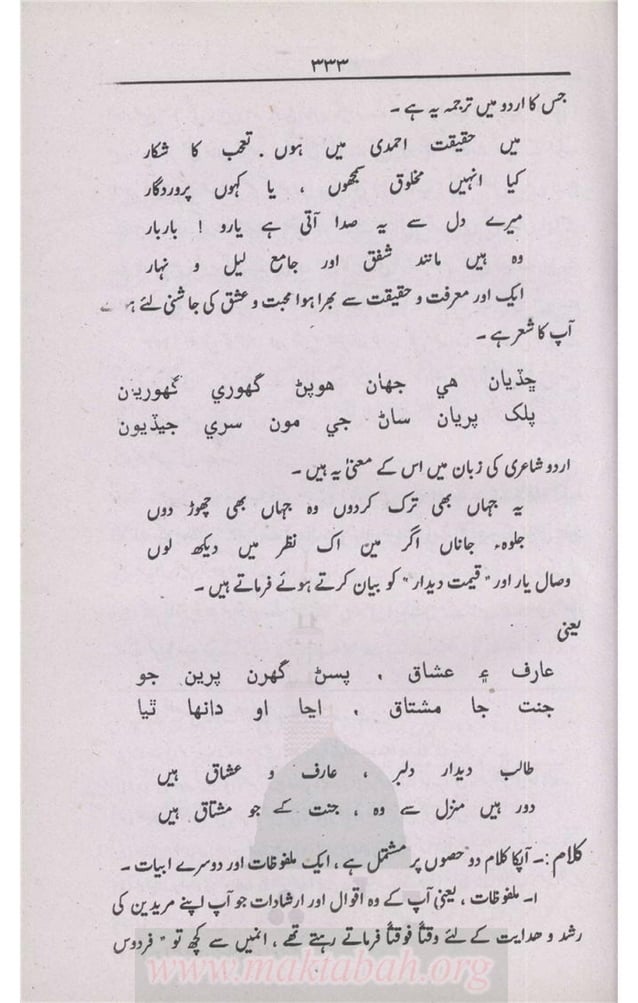 ۳۳۳
جس کا اردو میں ترجمہ یہ ہے ۔
میں حقیقت احمدی میں ہوں . تعجب کا شکار
کیا انہیں مخلوق سمجھوں ، یا کہوں پروردگار
میرے دل سے یہ صدا آتی ہے یارو ! باربار
وہ ہیں مانند شفق اور جامع لیل و نہار
ایک اور معرفت و حقیقت سے بھرا ہوا محبت و عشق کی چاشنی لئے ہوئے
آپ کا شعر ہے ۔
ڇڏيان هي جهان هوپڻ گهوري گهوريان
پلک پريان ساڻ جي مون سري جيڏيون
اردو شاعری کی زبان میں اس کے معنیٰ یہ ہیں ۔
یہ جہاں بھی ترک کردوں وہ جہاں بھی چھوڑ دوں
جلوہء جاناں اگر میں اک نظر میں دیکھ لوں
وصال یار اور "قیمت دیدار" کو بیان کرتے ہوئے فرماتے ہیں ۔
یعنی
عارف ۽ عشاق ، پسڻ گهرن پرين جو
جنت جا مشتاق ، اڃا او دانها ٿيا
طالب دیدار دلبر ، عارف و عشاق ہیں
دور ہیں منزل سے وہ ، جنت کے جو مشتاق ہیں
کلام :۔ آپکا کلام دو حصوں پر مشتمل ہے ، ایک ملفوظات اور دوسرے ابیات ۔
۱۔ ملفوظات ، یعنی آپ کے وہ اقوال اور ارشادات جو آپ اپنے مریدین کی
رشد و ھدایت کے لئے وقتاً فوقتاً فرماتے رہتے تھے ، انمیں سے کچھ تو " فردوس
www.maktabah.org